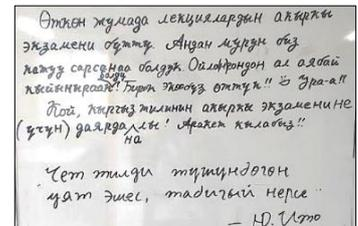 Өткөн жумада лекциялардын акыркы
экзамени бүттү. Андан мурун биз
катуу сарсанаа болдук. Ойлогондон ал аябай
кыйыныраак болду! Бирок экөөбүз өттүк!! Ура-а!!
Кой, кыргыз тилинин акыркы экзаменине
(үчүн) даярданалы! Аракет кылабыз!!
"Чет тилди түшүнбөгөн
уят эмес, табигый нерсе"
– Ю. Ито